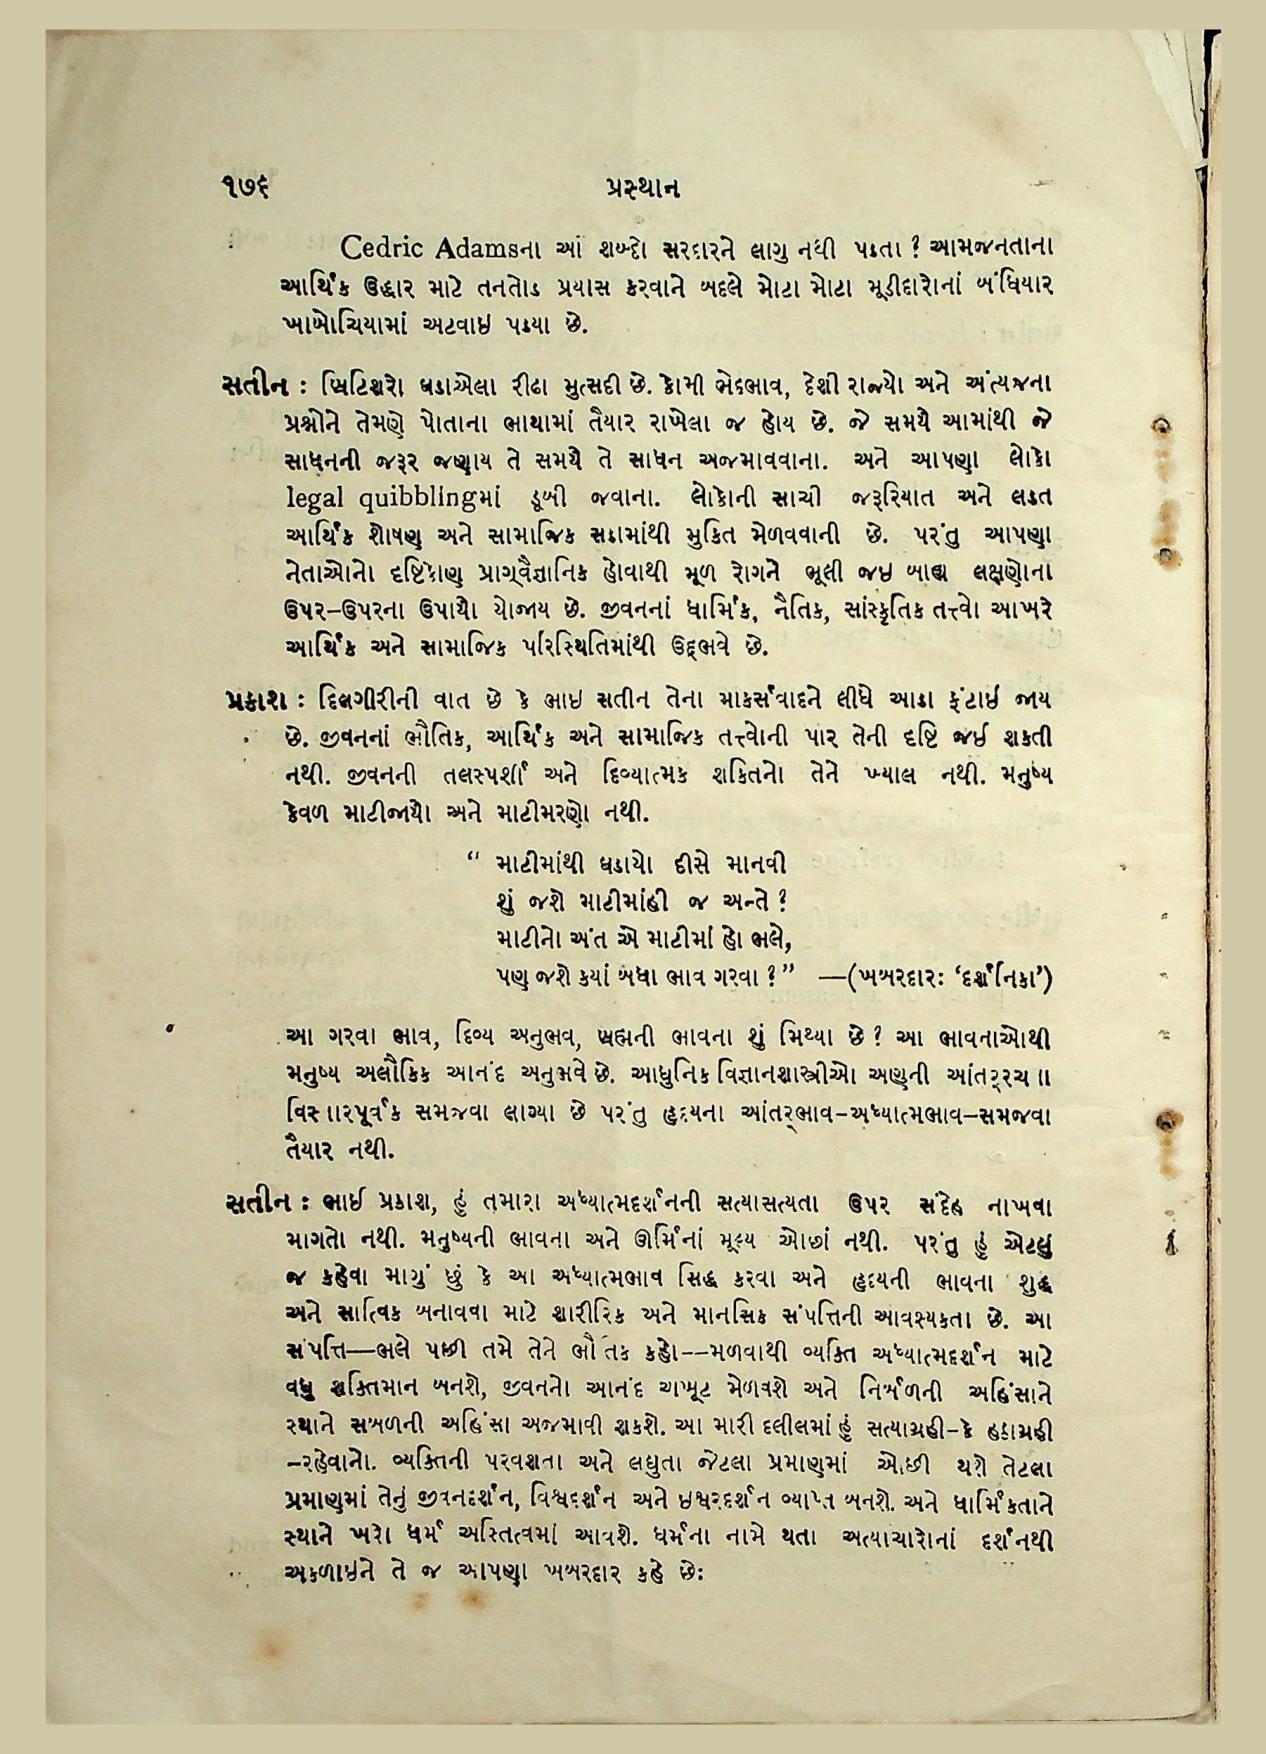 ૧૭૬ પ્રસ્થાન
Cedric Adamsના આ શબ્દો સરદારને લાગુ નથી પડતા ? આમજનતાના
આર્થિક ઉદ્ધાર માટે તનતોડ પ્રયાસ કરવાને બદલે મોટા મોટા મૂડીદારોનાં બંધિયાર
ખાબોચિયામાં અટવાઇ પડયા છે.
સતીન : બ્રિટિશરો ઘડાએલા રીઢા મુત્સદી છે. કોમી ભેદભાવ, દેશી રાજ્યો અને અંત્યજના
પ્રશ્નોને તેમણે પોતાના ભાથામાં તૈયાર રાખેલા જ હોય છે. જે સમયે આમાંથી જે
સાધનની જરૂર જણાય તે સમયે તે સાધન અજમાવવાના. અને આપણા લોકો
legal quibblingમાં ડૂબી જવાના. લોકોની સાચી જરૂરિયાત અને લડત
આર્થિક શોષણ અને સામાજિક સડામાંથી મુક્તિ મેળવવાની છે. પરંતુ આપણા
નેતાઓનો દષ્ટિકોણ પ્રાગ્વૈજ્ઞાનિક હોવાથી મૂળ રોગને ભૂલી જઇ બાહ્ય લક્ષણોના
ઉપર-ઉપરના ઉપાયો યોજાય છે. જીવનનાં ધાર્મિક, નૈતિક, સાંસ્કૃતિક તત્ત્વો આખરે
આર્થિક અને સામાજિક પરિસ્થિતિમાંથી ઉદ્ભવે છે.
પ્રકાશ : દિલગીરીની વાત છે કે ભાઇ સતીન તેના માર્ક્સવાદને લીધે આડા ફંટાઇ જાય
છે. જીવનનાં ભૌતિક, આર્થિક અને સામાજિક તત્ત્વોની પાર તેની દષ્ટિ જઇ શકતી
નથી. જીવનની તલસ્પર્શી અને દિવ્યાત્મક શક્તિનો તેને ખ્યાલ નથી. મનુષ્ય
કેવળ માટીજાયો અને માટીમરણો નથી.
“ માટીમાંથી ઘડાયો દીસે માનવી
શું જશે માટીમાંહી જ અન્તે ?
માટીનો અંત એ માટીમાં હો ભલે,
પણ જશે કયાં બધા ભાવ ગરવા ?” —(ખબરદાર: ‘દર્શનિકા’)
આ ગરવા ભાવ, દિવ્ય અનુભવ, બ્રહ્મની ભાવના શું મિથ્યા છે ? આ ભાવનાઓથી
મનુષ્ય અલૌકિક આનંદ અનુભવે છે. આધુનિક વિજ્ઞાનશાસ્ત્રીઓ અણુની આંતર્રચના
વિસ્તારપૂર્વક સમજવા લાગ્યા છે પરંતુ હૃદયના આંતર્ભાવ-અધ્યાત્મભાવ-સમજવા
તૈયાર નથી.
સતીન : ભાઈ પ્રકાશ, હું તમારા અધ્યાત્મદર્શનની સત્યાસત્યતા ઉપર સંદેહ નાખવા
માગતો નથી. મનુષ્યની ભાવના અને ઊર્મિનાં મૂલ્ય ઓછાં નથી. પરંતુ હું એટલું
જ કહેવા માગું છું કે આ અધ્યાત્મભાવ સિદ્ધ કરવા અને હૃદયની ભાવના શુદ્ધ
અને સાત્વિક બનાવવા માટે શારીરિક અને માનસિક સંપત્તિની આવશ્યકતા છે. આ
સંપત્તિ—ભલે પછી તમે તેને ભૌતિક કહો--મળવાથી વ્યક્તિ અધ્યાત્મદર્શન માટે
વધુ શક્તિમાન બનશે, જીવનનો આનંદ અખૂટ મેળવશે અને નિર્બળની અહિંસાને
સ્થાને સબળની અહિંસા અજમાવી શકશે. આ મારી દલીલમાં હું સત્યાગ્રહી-કે હઠાગ્રહી
-રહેવાનો. વ્યક્તિની પરવશતા અને લઘુતા જેટલા પ્રમાણમાં ઓછી થશે તેટલા
પ્રમાણમાં તેનું જીવનદર્શન, વિશ્વદર્શન અને ઇશ્વરદર્શન વ્યાપ્ત બનશે. અને ધાર્મિકતાને
સ્થાને ખરો ધર્મ અસ્તિત્વમાં આવશે. ધર્મના નામે થતા અત્યાચારોનાં દર્શનથી
અકળાઇને તે જ આપણા ખબરદાર કહે છે: